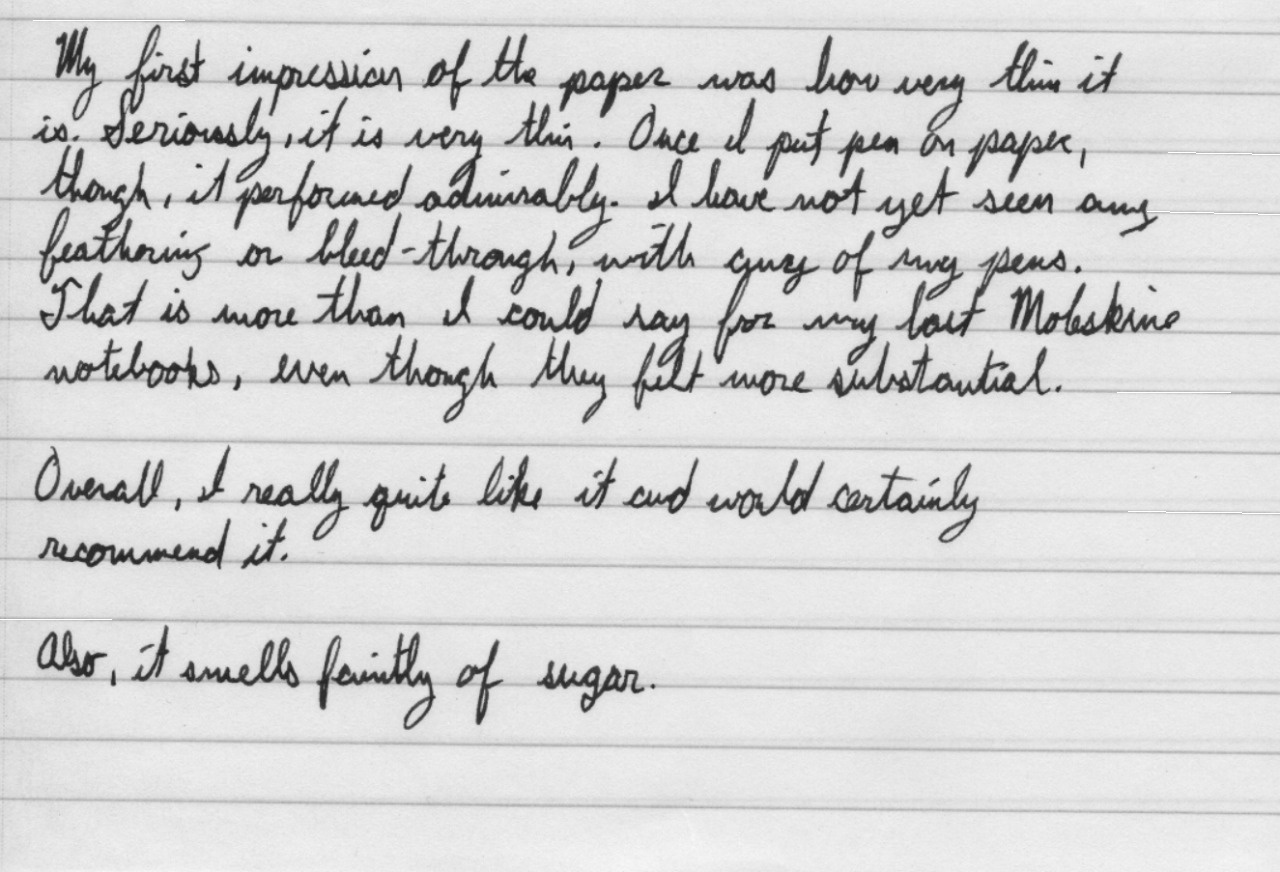 My first impression of the paper was how very thin it
is. Seriously, it is very thin. Once I put pen on paper,
though, it performed admirably. I have not yet seen any
feathering or bleed-through, with any of my pens.
That is more than I could say for my last Moleskine
notebooks, even though they felt more substantial.
Overall, I really quite like it and would certainly
recommend it.
Also, it smells faintly of sugar.